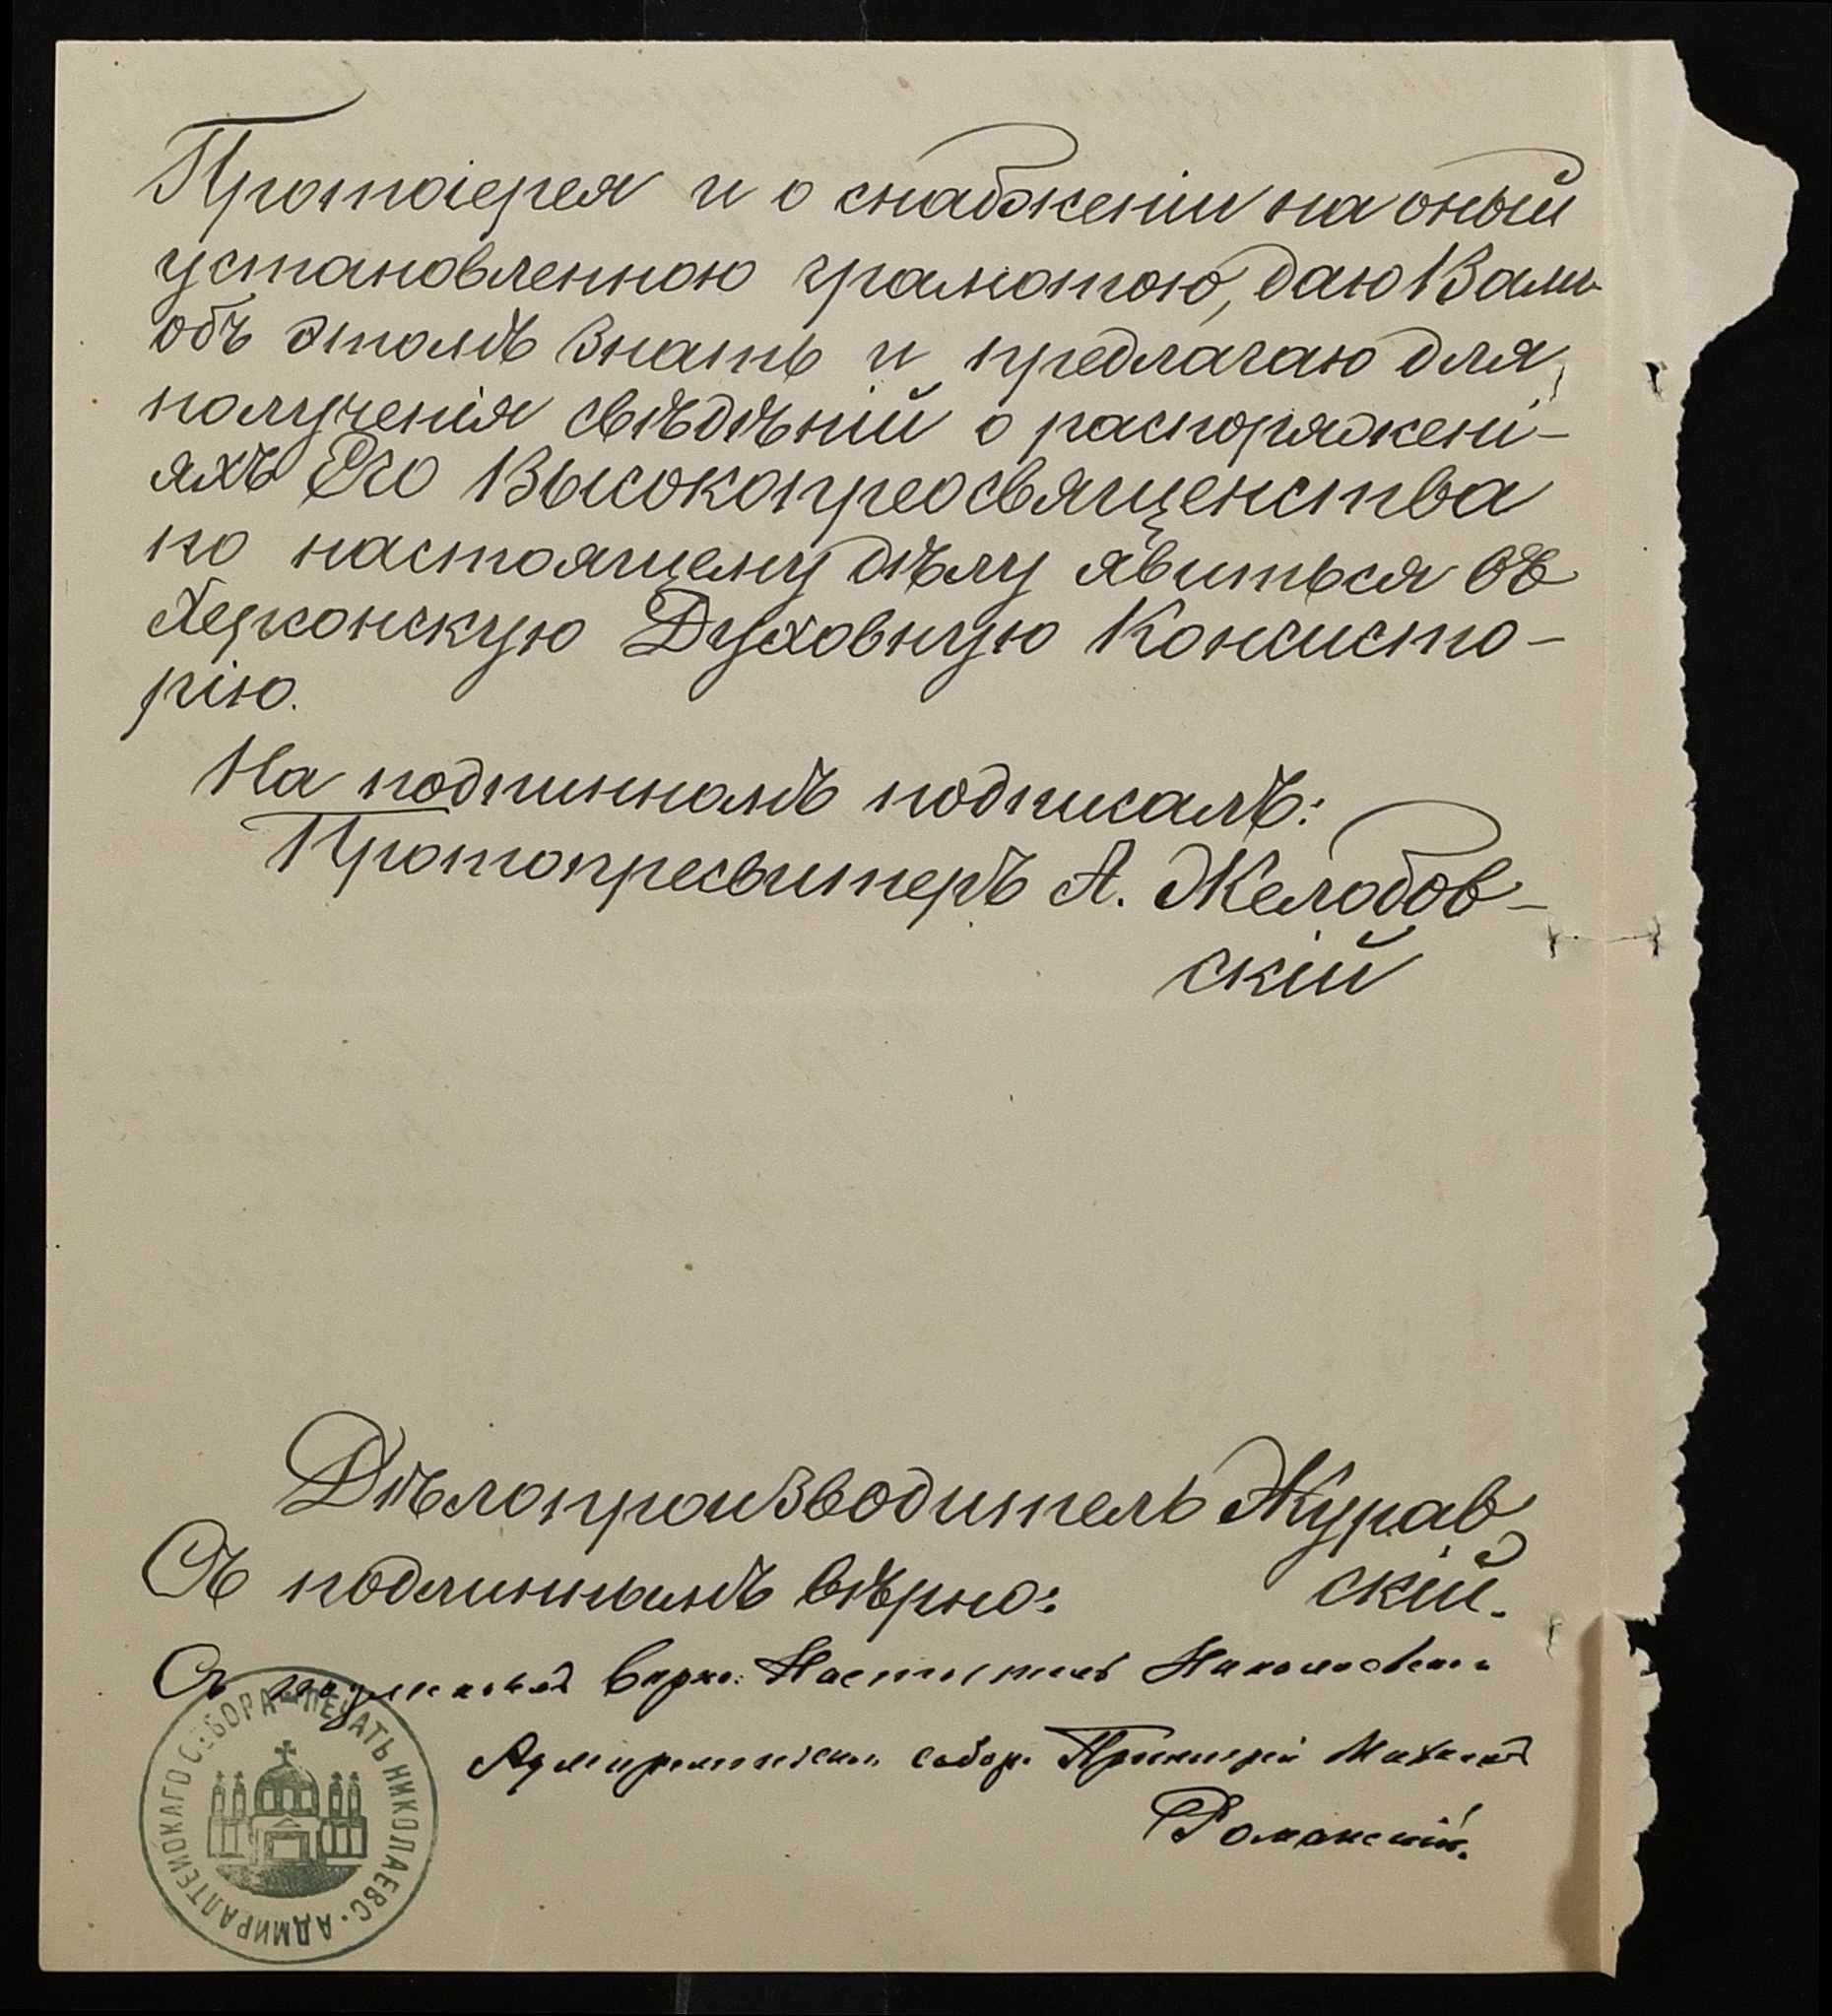 Протоіерея и о снабженіи на оный
установленною грамотою, даю Вамъ
объ этомъ знать и предлагаю для
полученія свѣдѣній о распоряжені-
яхъ Его Высокопреосвященства
по настоящему дѣлу явиться въ
Херсонскую Духовную Консисто-
рію.
На подлинномъ подписалъ:
Протопресвитеръ А. Желобов-
скій
Дѣлопроизводитель Журав
скій.
Съ подлиннымъ вѣрно:
Съ верно: Настоятель Николаевскаго
Адмиралтейскаго собор. Протоіерей Михаилъ
Романскій.
ПЕЧАТЬ НИКОЛАЕВС. АДМИРАЛТЕЙСКАГО СОБОРА